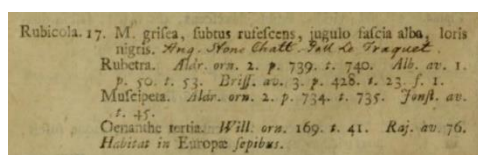 Rubicola. 17. M. grisea, subtus rufescens, jugulo fascia alba, loris
nigris. Ang. Stone Chatt. Gall Le Traquet.
Rubetra. Aldr. orn. 2. p. 739. t. 740. Alb. av. 1.
p. 50. t. 53. Briss. av. 3. p. 428. t. 23. f. 1.
Muscipeta. Aldr. orn. 2. p. 734. t. 735. Jonst. av.
t. 45.
Oenanthe tertia. Will. orn. 169. t. 41. Raj. av. 76.
Habitat in Europæ sepibus.